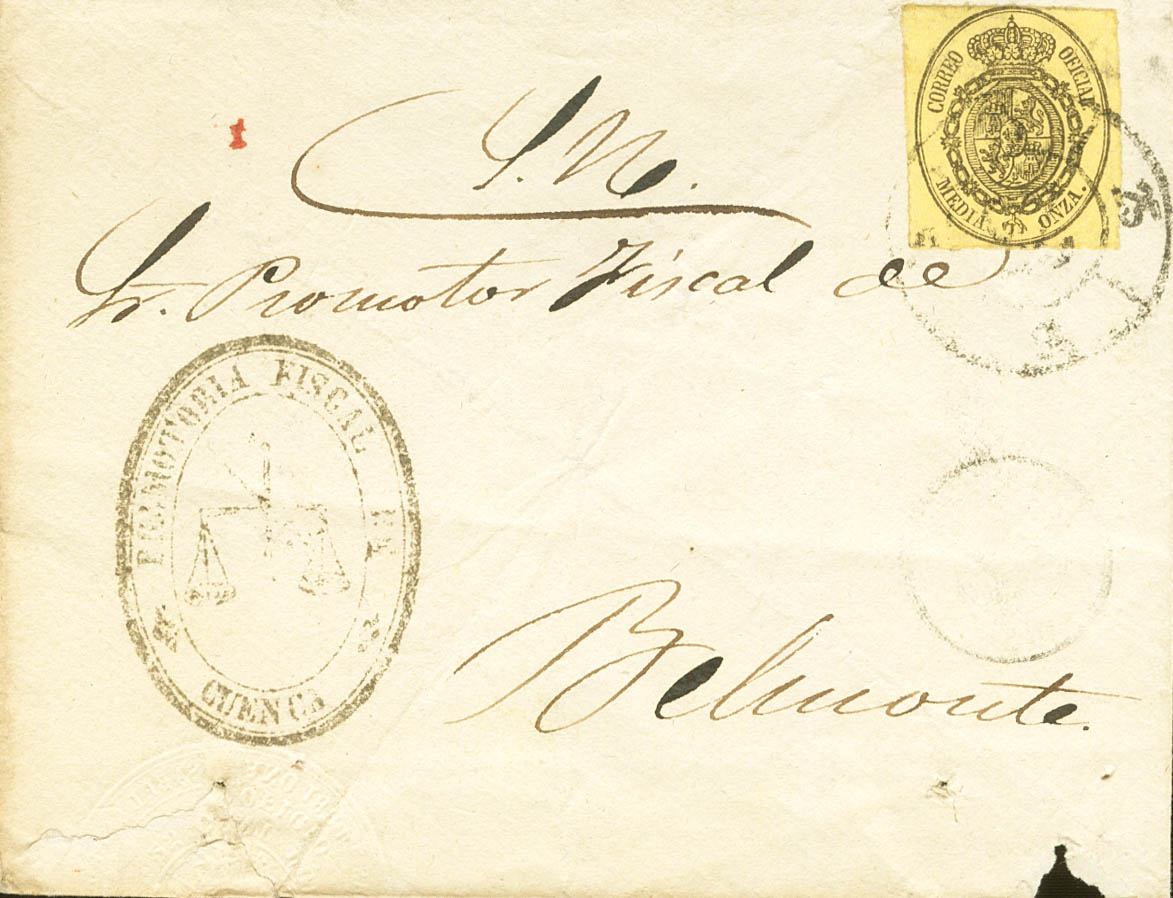 CORREO OFICIAL
MEDIA ONZA.
S. N.
Sr. Promotor Fiscal de
PROMOTORIA FISCAL DE
CUENCA
Belmonte.